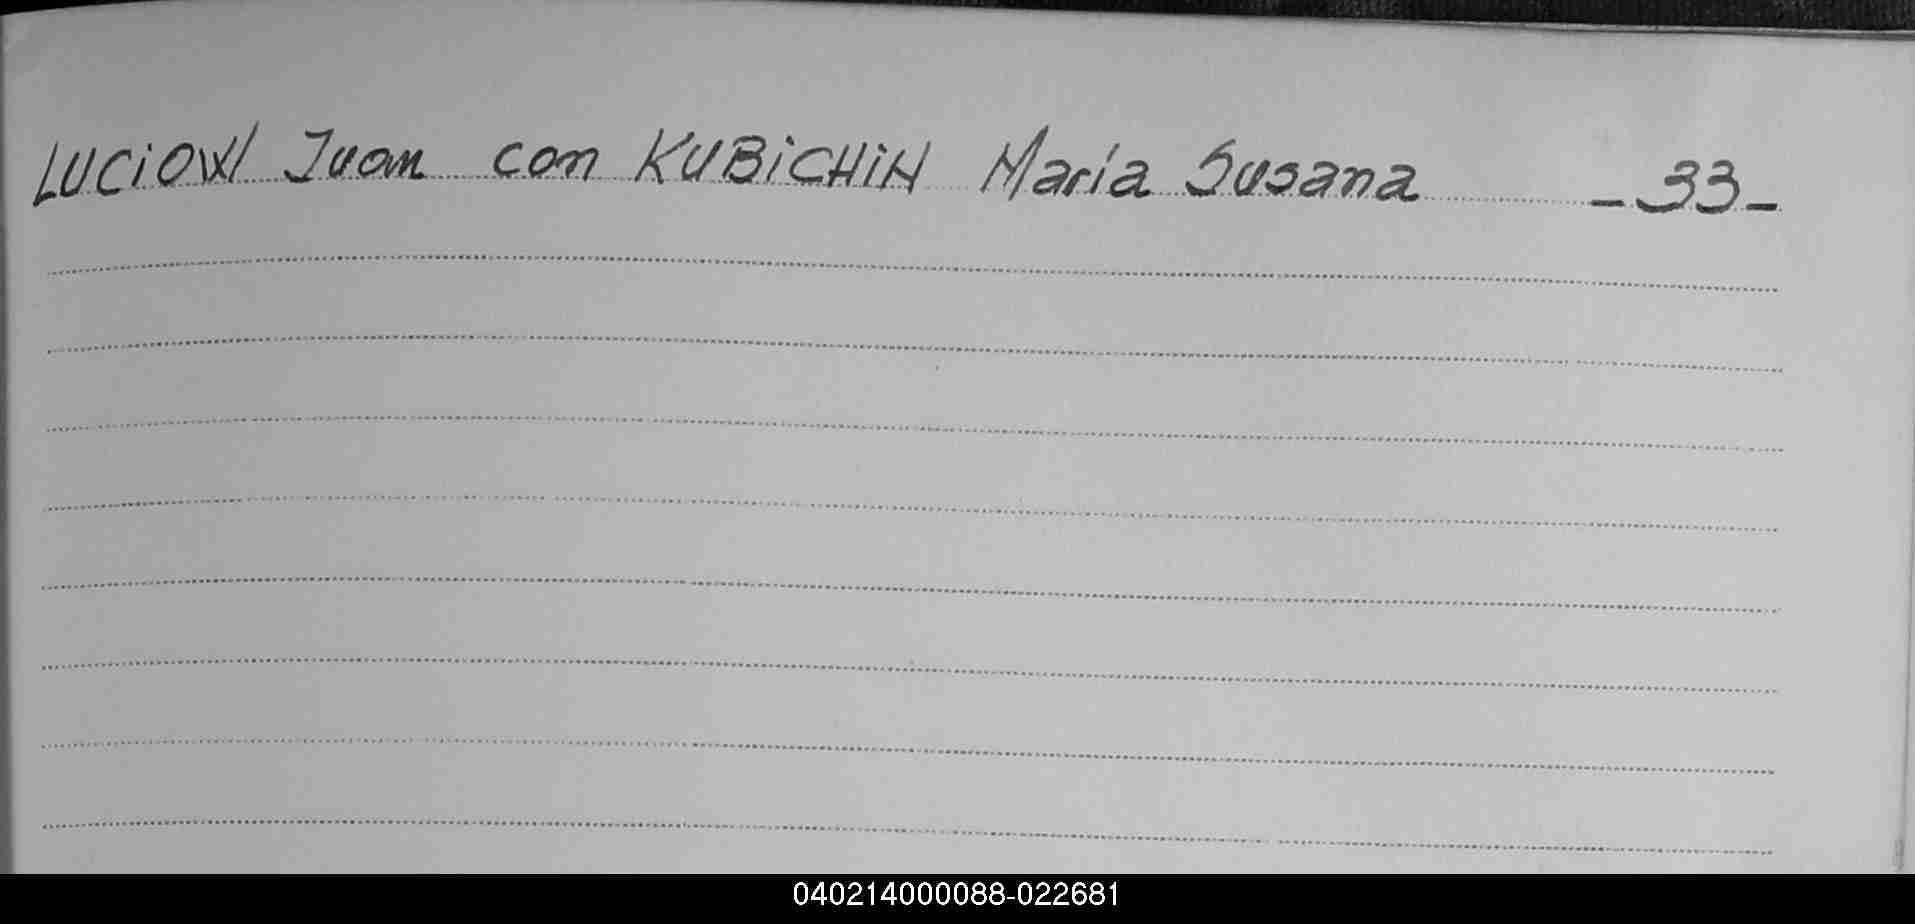 LUCiOW Juan con KUBiCHiN María Susana _33_
040214000088-022681